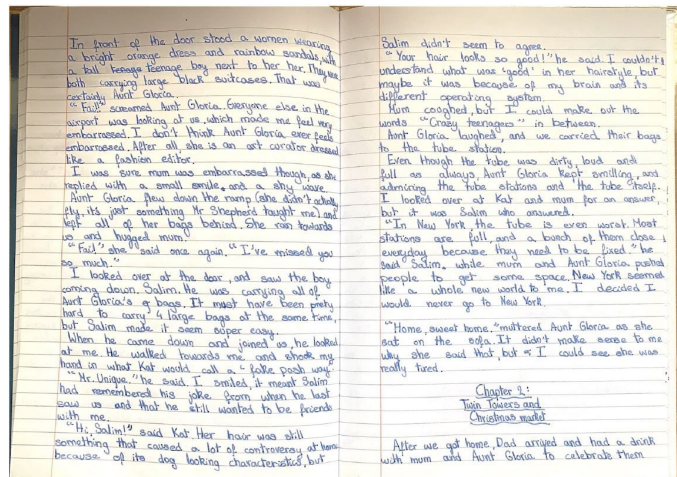 In front of the door stood a women wearing
a bright orange dress and rainbow sandals, with
a tall teenage boy next to her her. They were
both carrying large black suitcases. That was
certainly Aunt Gloria.
"Fai!" screamed Aunt Gloria. Everyone else in the
airport was looking at us, which made me feel very
embarrassed. I don't think Aunt Gloria ever feels
embarrassed. After all, she is an art curator dressed
like a fashion editor.
I was sure mum was embarrassed though, as she
replied with a small smile, and a shy wave.
Aunt Gloria flew down the ramp (she didn't actually
fly, its just something Mr Shepherd taught me) and
left all of her bags behind. She ran towards
us and hugged mum.
"Fai!" she said once again. "I've missed you
so much."
I looked over at the door, and saw the boy
coming down. Salim. He was carrying all of
Aunt Gloria's bags. It must have been pretty
hard to carry 4 large bags at the same time,
but Salim made it seem super easy.
When he came down and joined us, he looked
at me. He walked towards me, and shook my
hand in what Kat would call a "fake posh way."
"Mr. Unique." he said. I smiled, it meant Salim
had remembered his joke from when he last
saw us and that he still wanted to be friends
with me.
"Hi, Salim!" said Kat. Her hair was still
something that caused a lot of controversy at home
because of its dog looking characteristics, but
Salim didn't seem to agree.
"Your hair looks so good!" he said. I couldn't
understand what was 'good' in her hairstyle, but
maybe it was because of my brain and its
different operating system.
Mum coughed, but I could make out the
words "Crazy teenagers" in between.
Aunt Gloria laughed, and we carried their bags
to the tube station.
Even though the tube was dirty, loud and
full as always, Aunt Gloria kept smiling, and
admiring the tube stations and the tube itself.
I looked over at Kat and mum for an answer,
but it was Salim who answered.
"In New York the tube is even worst. Most
stations are full, and a bunch of them close
everyday because they need to be fixed." he
said Salim, while mum and Aunt Gloria pushed
people to get some space. New York seemed
like a whole new world to me. I decided I
would never go to New York.
"Home, sweet home." muttered Aunt Gloria as she
sat on the sofa. It didn't make sense to me
why she said that, but I could see she was
really tired.
Chapter 2:
Twin Towers and
Christmas market
After we got home, Dad arrived and had a drink
with mum and Aunt Gloria to celebrate them